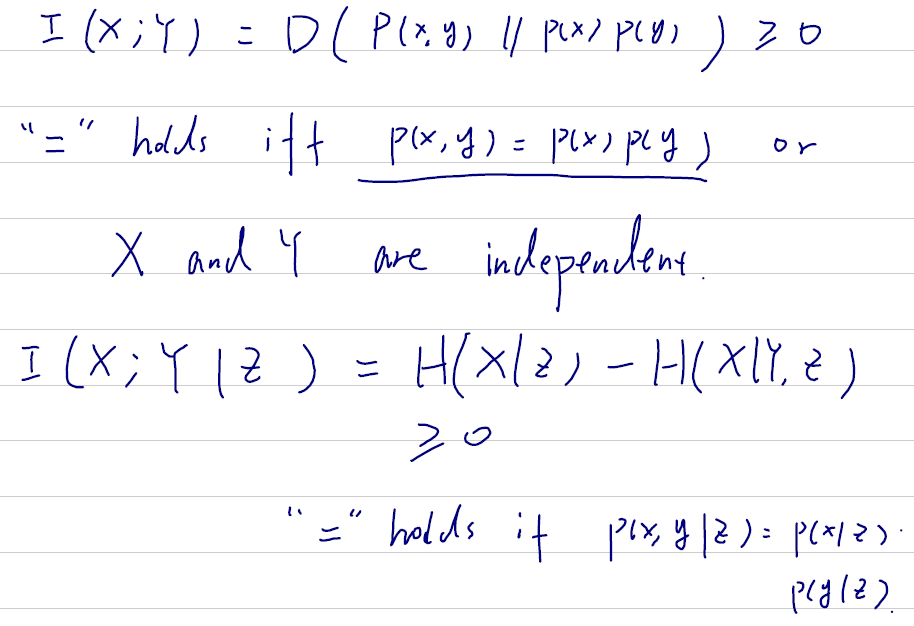 I(X;Y) = D(P(x,y) || p(x) p(y)) ≥ 0
"=" holds iff p(x,y) = p(x) p(y) or
X and Y are independent.
I(X;Y|Z) = H(X|Z) - H(X|Y,Z)
≥ 0
"=" holds if p(x,y|z) = p(x|z)·
p(y|z).